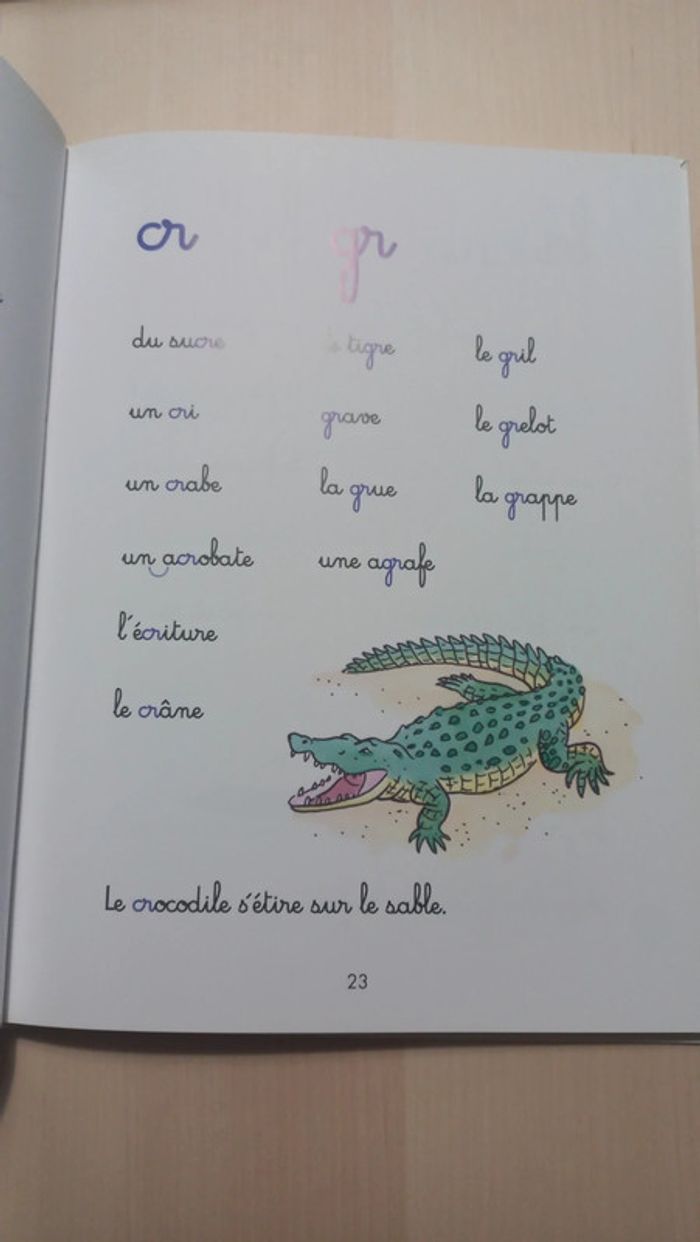 cr gr
du sucre tigre le gril
un cri grave le grelot
un crabe la grue la grappe
un acrobate une agrafe
l'écriture
le crâne
Le crocodile s'étire sur le sable.
23